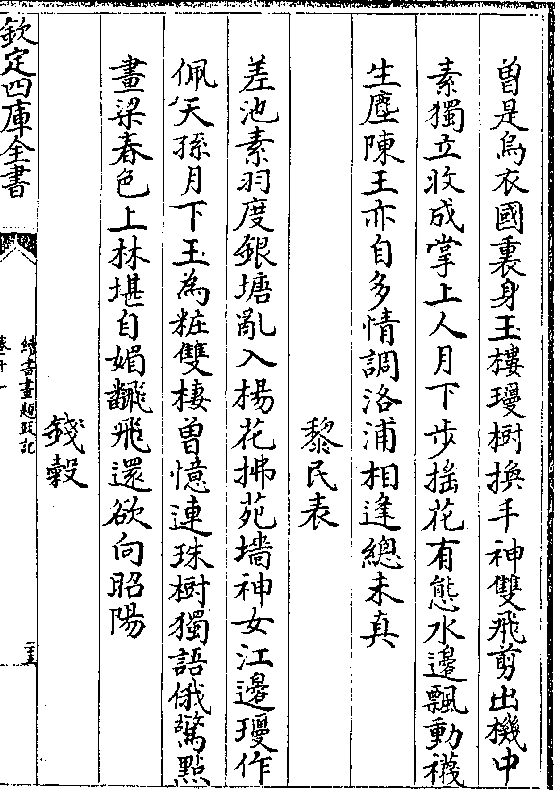 曽是烏衣國裏身玉樓瓊樹換手神雙飛剪出機中
素獨立收成掌上人月下歩揺花有態水邊飄動襪
生塵陳王亦自多情調洛浦相逢總未真
黎民表
差池素羽度銀塘亂入楊花拂苑墻神女江邊瓊作
佩天孫月下玉為粧雙棲曽憶連珠樹獨語俄驚點
畫梁春色上林堪自媚翩飛還欲向昭陽
錢榖
欽定四庫全書
續書畫題跋記
卷十一
二十五